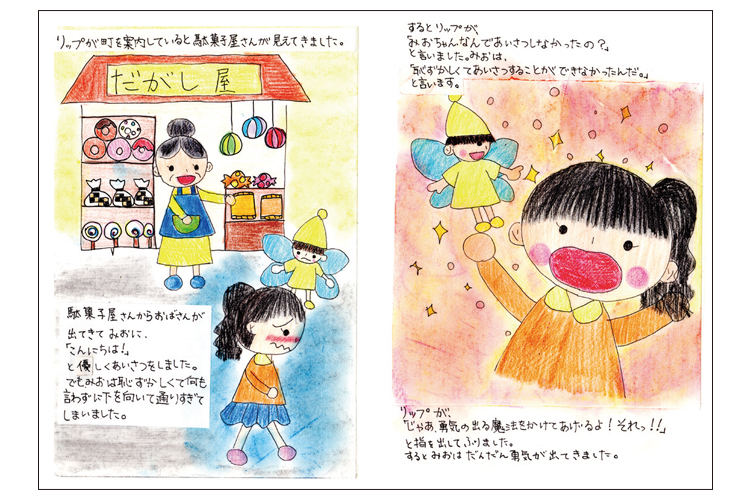 リップが町を案内していると駄菓子屋さんが見えてきました。
だがし屋
駄菓子屋さんからおばさんが
出てきてみおに、
「こんにちは！」
と優しくあいさつをしました。
でもみおは恥ずかしくて何も
言わずに下を向いて通りすぎて
しまいました。
するとリップが
「みおちゃんなんであいさつしなかったの？」
と言いました。みおは、
「恥ずかしくてあいさつすることができなかったんだ。」
と言います。
リップが
「じゃあ、勇気の出る魔法をかけてあげるよ！それっ！！」
と指を出してふりました。
するとみおはだんだん勇気が出てきました。